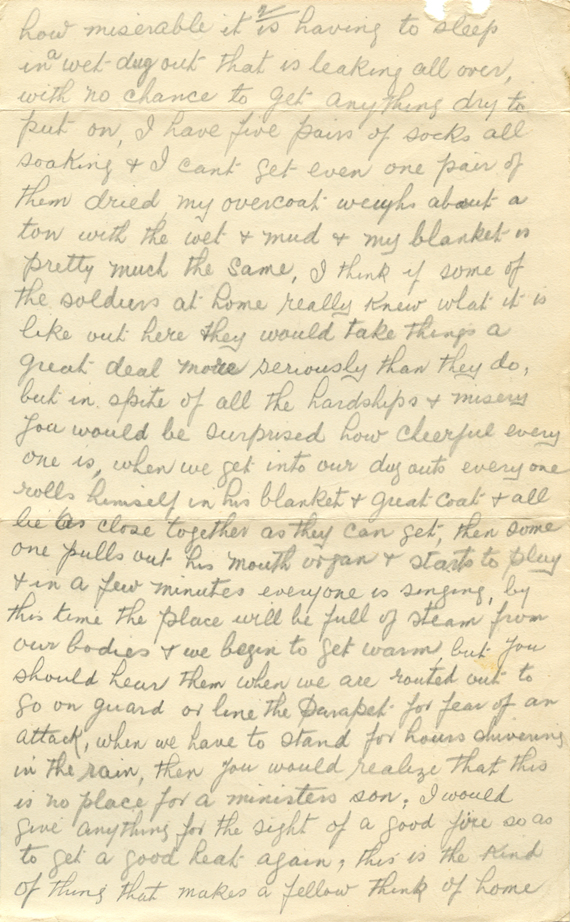 2
how miserable it is having to sleep
in a wet dug out that is leaking all over,
with no chance to get anything dry to
put on, I have five pairs of socks all
soaking & I cant get even one pair of
them dried, my overcoat weighs about a
ton with the wet & mud & my blanket is
pretty much the same, I think if some of
the soldiers at home really knew what it is
like out here they would take things a
great deal more seriously than they do,
but in spite of all the hardships & misery
you would be surprised how cheerful every
one is, when we get into our dug outs every one
rolls himself in his blanket & great coat & all
lie as close together as they can get, then some
one pulls out his mouth organ & starts to play
& in a few minutes everyone is singing, by
this time the place will be full of steam from
our bodies & we begin to get warm but you
should hear them when we are routed out to
go on guard or line the parapet for fear of an
attack, when we have to stand for hours shivering
in the rain, then you would realize that this
is no place for a ministers son, I would
give anything for the sight of a good fire so as
to get a good heat again, this is the kind
of thing that makes a fellow think of home